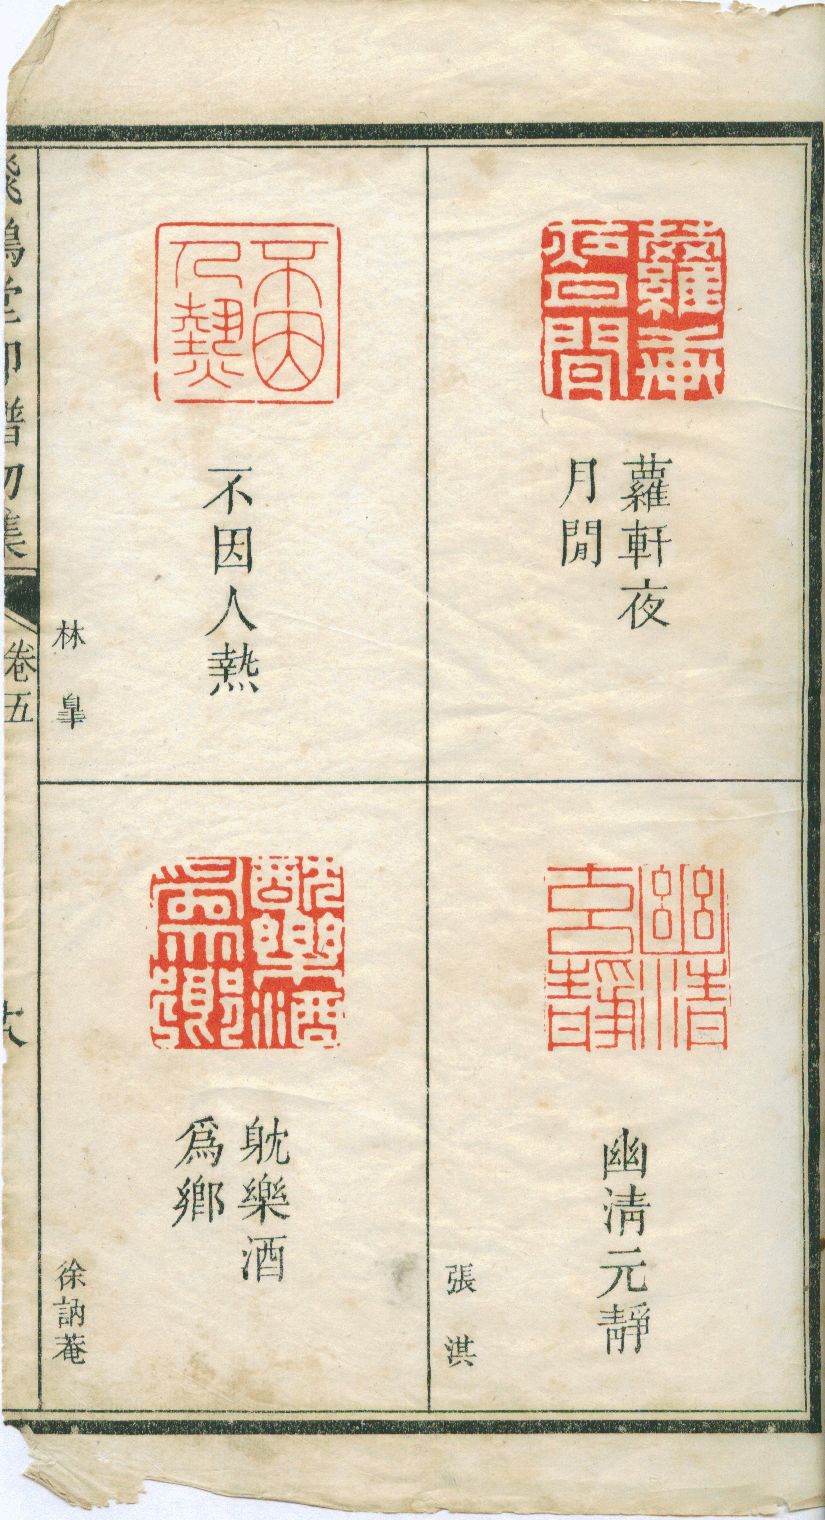 蘿軒夜
月閒
幽淸元靜
張淇
不因人熱
林臯
躭樂酒
爲鄉
徐訥菴
飛鴻堂印譜初集
卷五